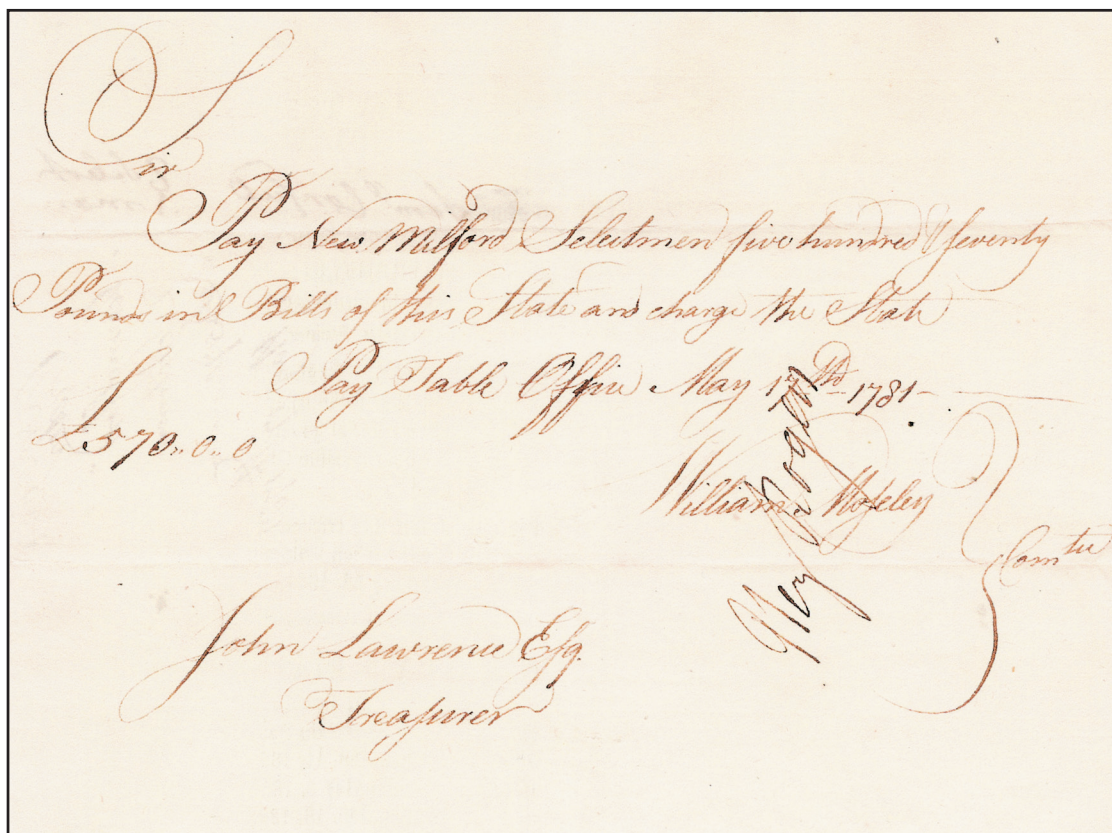 Sir
Pay New Milford Selectmen five hundred & seventy
Pounds in Bills of this State and charge the State
Pay Table Office May 17th 1781
£570..0..0
William Moseley
Comtee
John Lawrence Esq.
Treasurer